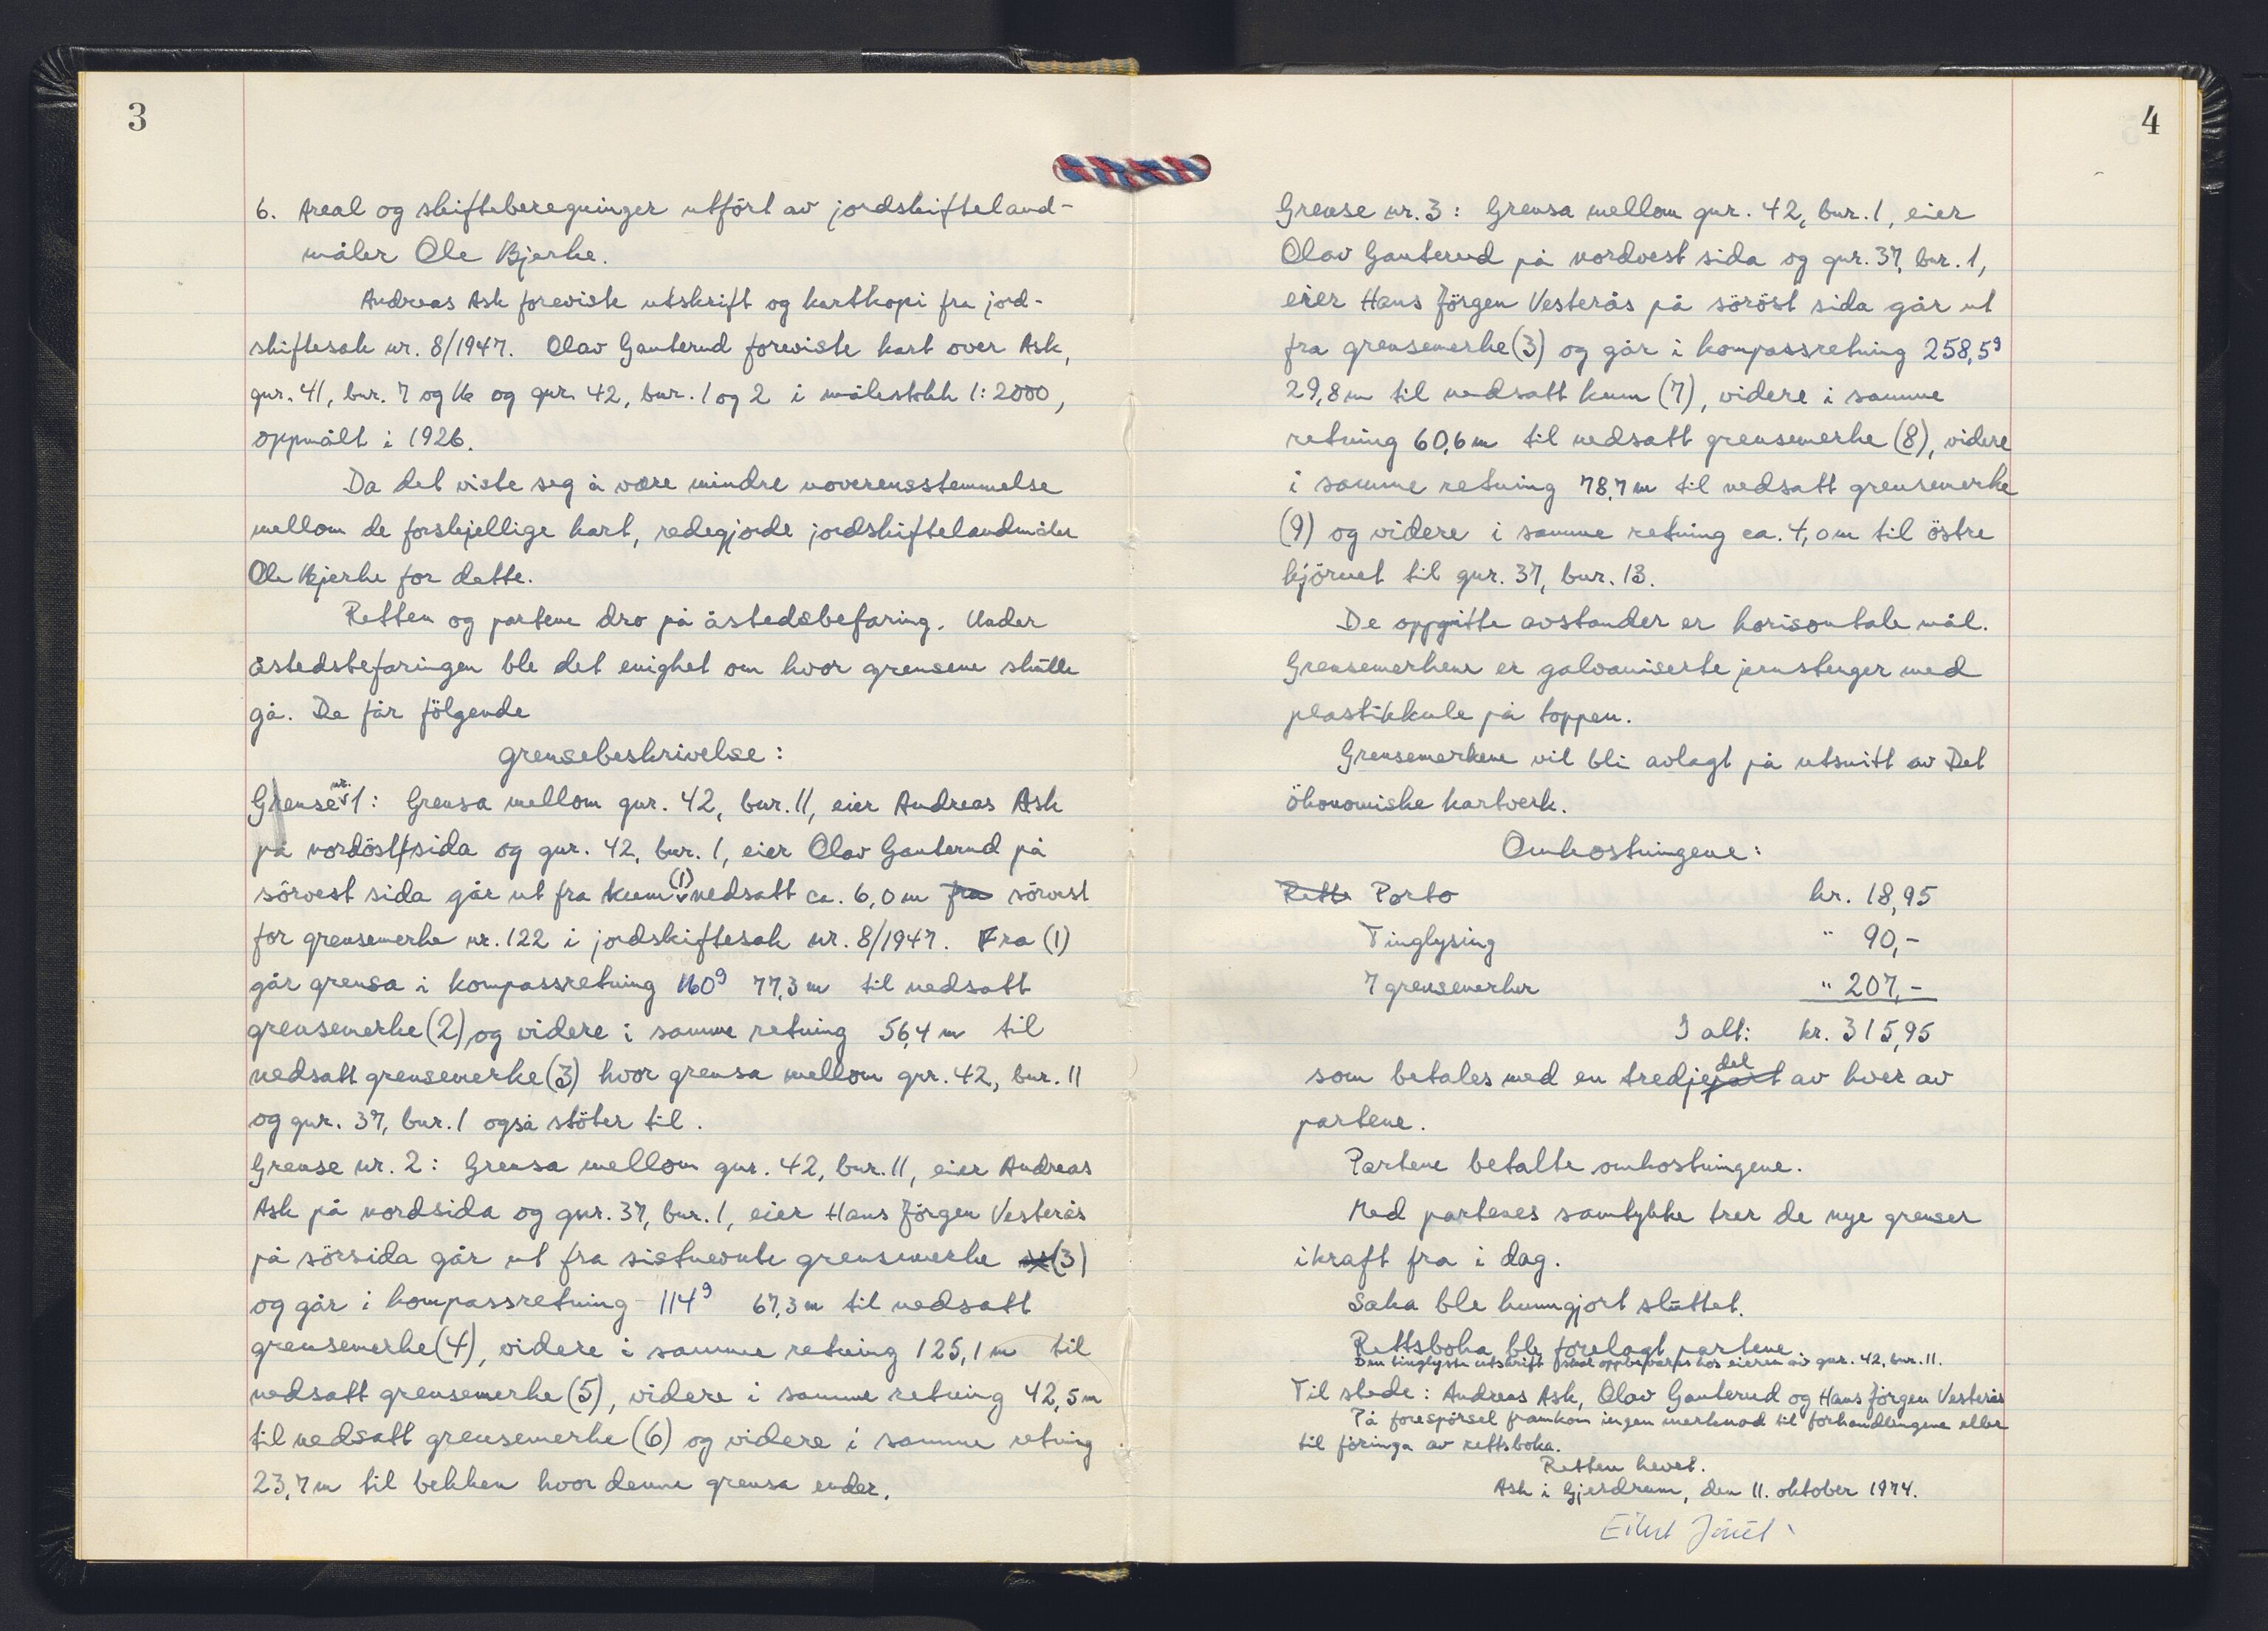 3
6. Areal og skifteberegninger utfört av jordskifteland-
måler Ole Bjerke.
Andreas Ask foreviste utskrift og kartkopi fra jord-
skiftesak nr. 8/1947. Olav Ganterud foreviste kart over Ask,
gnr. 41, bnr. 7 og 16 og gnr. 42, bnr. 1 og 2 i målestokk 1:2000,
oppmålt i 1926.
Da det viste seg å være mindre uoverensstemmelse
mellom de forskjellige kart, redegjorde jordskiftelandmåler
Ole Bjerke for dette.
Retten og partene dro på åstedsbefaring. Under
åstedsbefaringen ble det enighet om hvor grensene skulle
gå. De får fölgende
grensebeskrivelse:
Grense nr. 1: Grensa mellom gnr. 42, bnr. 11, eier Andreas Ask
på nordöstsida og gnr. 42, bnr. 1, eier Olav Ganterud på
sörvest sida går ut fra kum (1) nedsatt ca. 6,0 m fra sörvest
for grensemerke nr. 122 i jordskiftesak nr. 8/1947. Fra (1)
går grensa i kompassretning 160g 77,3 m til nedsatt
grensemerke (2) og videre i samme retning 56,4 m til
nedsatt grensemerke (3) hvor grensa mellom gnr. 42, bnr. 11
og gnr. 37, bnr. 1 også stöter til.
Grense nr. 2: Grensa mellom gnr. 42, bnr. 11, eier Andreas
Ask på nordsida og gnr. 37, bnr. 1, eier Hans Jörgen Vesterås
på sörsida går ut fra sistnevnte grensemerke (3)
og går i kompassretning 114g 67,3 m til nedsatt
grensemerke (4), videre i samme retning 125,1 m til
nedsatt grensemerke (5), videre i samme retning 42,5 m
til nedsatt grensemerke (6) og videre i samme retning
23,7 m til bekken hvor denne grensa ender.
4
Grense nr. 3: Grensa mellom gnr. 42, bnr. 1, eier
Olav Ganterud på nordvest sida og gnr. 37, bnr. 1,
eier Hans Jörgen Vesterås på söröst sida går ut
fra grensemerke (3) og går i kompassretning 258,5g
29,8 m til nedsatt kum (7), videre i samme
retning 60,6 m til nedsatt grensemerke (8), videre
i samme retning 78,7 m til nedsatt grensemerke
(9) og videre i samme retning ca. 4,0 m til östre
hjörnet til gnr. 37, bnr. 13.
De oppgitte avstander er horisontale mål.
Grensemerkene er galvaniserte jernstenger med
plastikkule på toppen.
Grensemerkene vil bli avlagt på utsnitt av Det
ökonomiske kartverk.
Omkostningene:
Rette Porto kr. 18,95
Tinglysing " 90,-
7 grensemerker " 207,-
I alt: kr. 315,95
som betales med en tredjepart del av hver av
partene.
Partene betalte omkostningene.
Med partenes samtykke trer de nye grenser
ikraft fra i dag.
Saka ble kunngjort sluttet.
Rettsboka ble forelagt partene
Den tinglyste utskrift skal oppbevares hos eieren av gnr. 42, bnr. 11.
Til stede: Andreas Ask, Olav Ganterud og Hans Jörgen Vesterås
På forespörsel framkom ingen merknad til forhandlingene eller
til föringa av rettsboka.
Retten hevet.
Ask i Gjerdrum, den 11. oktober 1974.